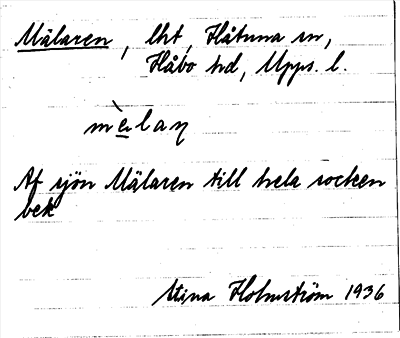 Mälaren, lht, Håtuna sn,
Håbo hd, Upps. l.
mὲlaɳ
Af sjön Mälaren till hela socken
bek
Stina Holmström 1936